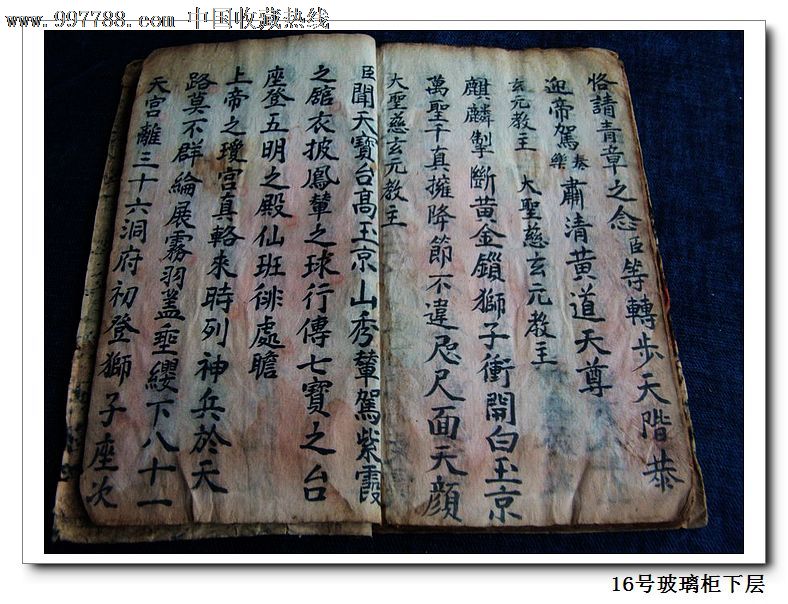 www.997788.com 中国收藏热线
恪請青章之念臣等轉步天階恭
迎帝駕奏樂 肅清黃道天尊
玄元教主 大聖慈玄元教主
麒麟掣斷黃金鎖獅子衝開白玉京
萬聖千真擁降節不違咫尺面天顏
大聖慈玄元教主
臣聞天寶台高玉京山秀輦駕紫霞
之舘衣披鳳輦之球行傳七寶之台
座登五明之殿仙班俳處瞻
上帝之瓊宮真輅来時列神兵於天
路莫不群綸展霧羽盖垂纓下八十一
天宮離三十六洞府初登獅子座次
16号玻璃柜下层